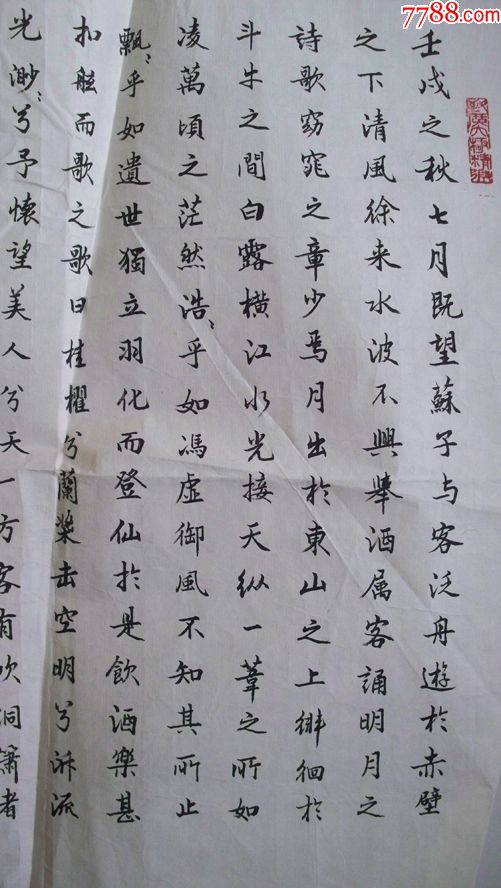 7788.com
壬戌之秋七月既望蘇子与客泛舟遊於赤壁
之下清風徐来水波不興舉酒属客誦明月之
詩歌窈窕之章少焉月出於東山之上徘徊於
斗牛之間白露横江水光接天縱一葦之所如
凌萬頃之茫然浩〻乎如馮虚御風不知其所止
飄〻乎如遺世獨立羽化而登仙於是飲酒樂甚
扣舷而歌之歌曰桂櫂兮蘭槳击空明兮泝流
光渺〻兮予懷望美人兮天一方客有吹洞簫者